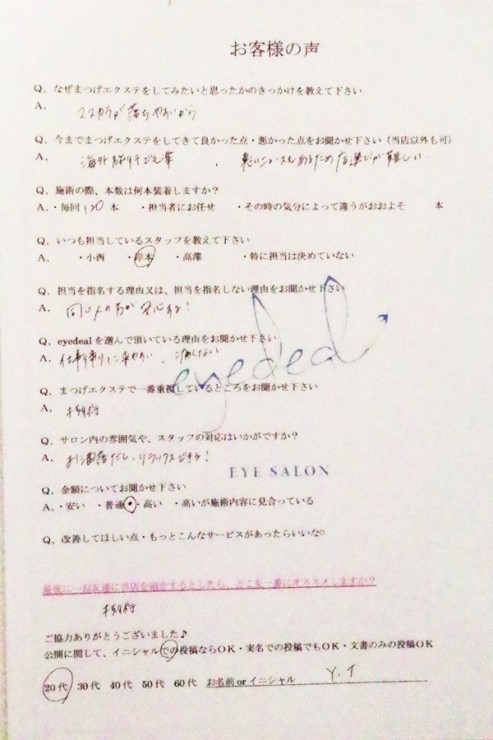 お客様の声
Q、なぜまつげエクステをしてみたいと思ったかのきっかけを教えて下さい
A、マスカラが落ちやすいから
Q、今までまつげエクステをしてきて良かった点・悪かった点をお聞かせ下さい（当店以外も可）
A、海外旅行でも楽 、悪いニュースもあるため店選びが難しい
Q、施術の際、本数は何本装着しますか？
A、・毎回120本 ・担当者にお任せ ・その時の気分によって違うがおおよそ 本
Q、いつも担当しているスタッフを教えて下さい
A、 ・小西 ・岸本 ・高澤 ・特に担当は決めていない
Q、担当を指名する理由又は、担当を指名しない理由をお聞かせ下さい
A、同じ人の方が安心する！
Q、eyedealを選んで頂いている理由をお聞かせ下さい
A、仕事帰りに来やすい、
eyedeal
Q、まつげエクステで一番重視しているところをお聞かせ下さい
A、
Q、サロン内の雰囲気や、スタッフの対応はいかがですか？
A、お洒落だし、リラックスできる！
EYE SALON
Q、金額についてお聞かせ下さい
A、・安い ・普通 ・高い ・高いが施術内容に見合っている
Q、改善してほしい点・もっとこんなサービスがあったらいいな♡
最後に…お客様に当店を紹介するとしたら、どこを一番にオススメしますか？
ご協力ありがとうございました♪
公開に関して、イニシャルでの投稿ならOK・実名での投稿でもOK・文書のみの投稿OK
20代 30代 40代 50代 60代 お名前 or イニシャル Y.T